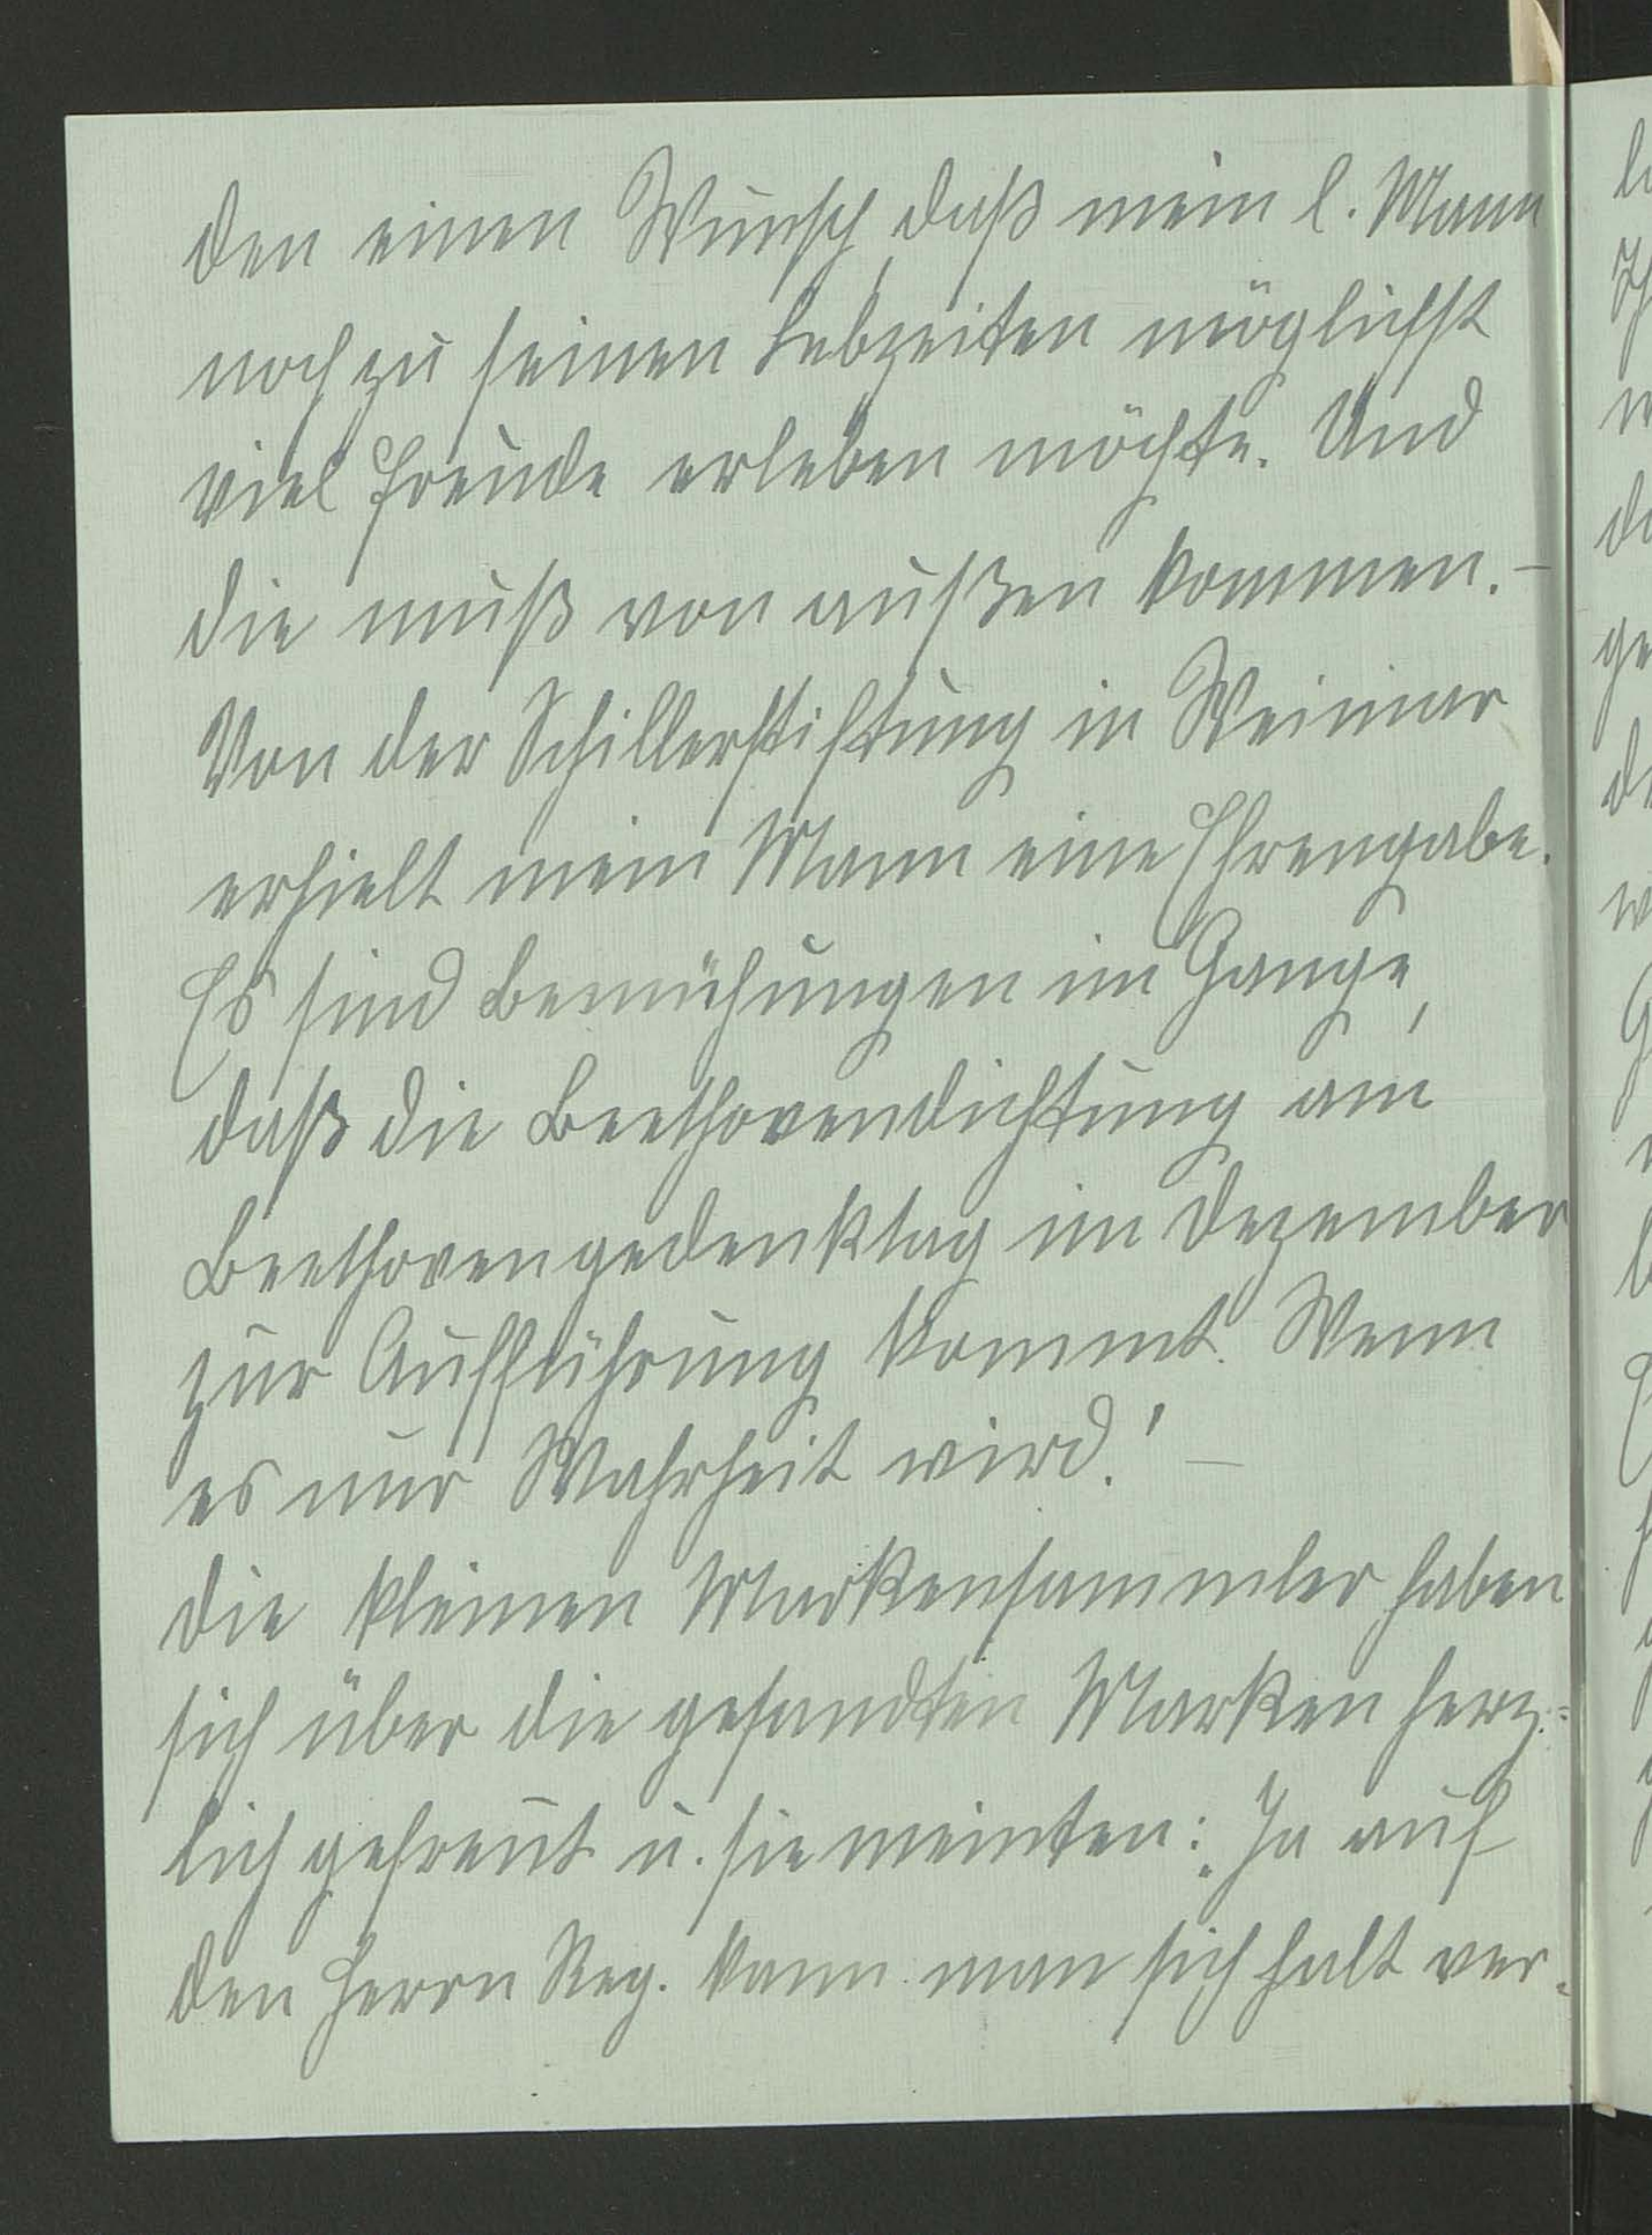 den einen Wunsch, daß mein l. Mann
noch zu seinen Lebzeiten möglichst
viel Freude erleben möchte. Und
die muß von außen kommen. –
Von der Schillerstiftung in Weimar
erhielt mein Mann eine Ehrengabe.
Es sind Bemühungen im Gange,
daß die Beethovendichtung am
Beethovengedenktag im Dezember
zur Aufführung kommt. Wenn
es nur Wahrheit wird! –
Die kleinen Markensammler haben
sich über die gesandten Marken herz=
lich gefreut u. sie meinten: „Ja auf
den Herrn Reg. kann man sich halt ver-